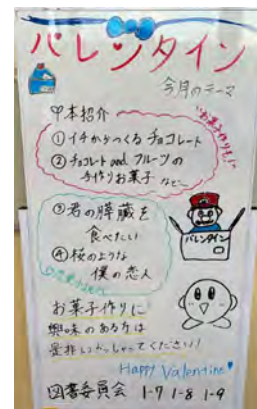 バレンタイン
今月のテーマ
本紹介
"お菓子作りも!"
①イチからつくるチョコレート
②チョコレートandフルーツの
手作りお菓子 など〜
③君の膵臓を
食べたい
④桜のような
僕の恋人
バレンタイン
お菓子作りに
興味のある方は
是非いらっしゃってください!!
Happy Valentine♥
図書委員会 1-7 1-8 1-9